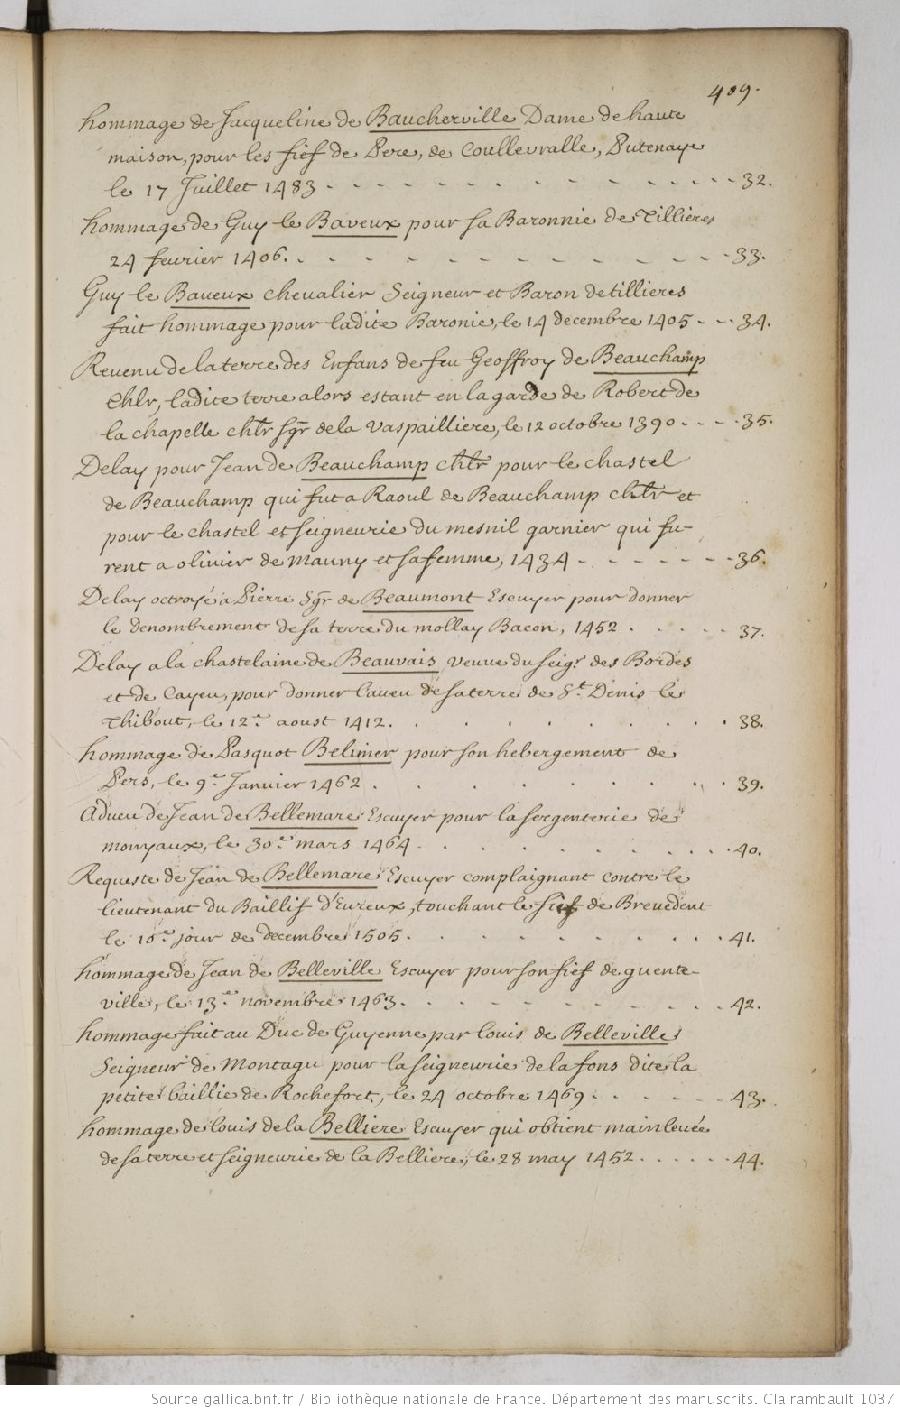 409.
hommage de Jacqueline de Baucherville Dame de haute
maison, pour les fief de Pere, de Coullevralle, Putenaye
le 17 Juillet 1483 - - - - - - - - - - - 32.
hommage de Guy le Baveux pour sa Baronnie de Tillieres
24 fevrier 1406. - - - - - - - - - - - 33.
Guy le Baveux chevalier Seigneur et Baron de tillieres
fait hommage pour ladite Baronie, le 14 decembre 1405 - - 34.
Revenu de la terre des Enfans de feu Geoffroy de Beauchamp
Chlr, ladite terre alors estant en la garde de Robert de
la chapelle chlr sgr de la Vaspailliere, le 12 octobre 1390 - - - - 35.
Delay pour Jean de Beauchamp chlr pour le chastel
de Beauchamp qui fut a Raoul de Beauchamp chlr et
pour le chastel et seigneurie du mesnil garnier qui fu-
rent a olivier de Mauny et sa femme, 1434 - - - - - - - 36.
Delay octroyé a Pierre Sgr de Beaumont Escuyer pour donner
le denombrement de sa terre du mollay Bacon, 1452 . . . . . 37.
Delay a la chastelaine de Beauvais, veuve du seigr. des Bordes
et de Cayeu, pour donner l'aveu de sa terre de St. Denis le
Thibout, le 12e. aoust 1412. . . . . . . . . . 38.
hommage de Pasquot Belimer pour son hebergement de
Pers, le 9e. Janvier 1462 . . . . . . . . . 39.
Adveu de Jean de Bellemare Escuyer pour la sergenterie de
moinyaux, le 30e. mars 1464 . . . . . . . . . 40.
Requeste de Jean de Bellemare Escuyer complaignant contre le
lieutenant du Baillif d'Evreux, touchant le fief de Brevedent
le 10e. jour de decembre 1505. . . . . . . . . 41.
hommage de Jean de Belleville Escuyer pour son fief de quente-
ville, le 13e. novembre 1463. . . . . . . . . 42.
hommage fait au Duc de Guyenne par louis de Belleville
Seigneur de Montagu pour la seigneurie de la fons dite la
petite baillie de Rochefort, le 24 octobre 1469 . . . . . . 43.
hommage de louis de la Belliere Escuyer qui obtient mainlevée
de sa terre et seigneurie de la Belliere, le 28 may 1452 . . . . . . 44.
Source gallica.bnf.fr / Bibliothèque nationale de France. Département des manuscrits. Clairambault 1037